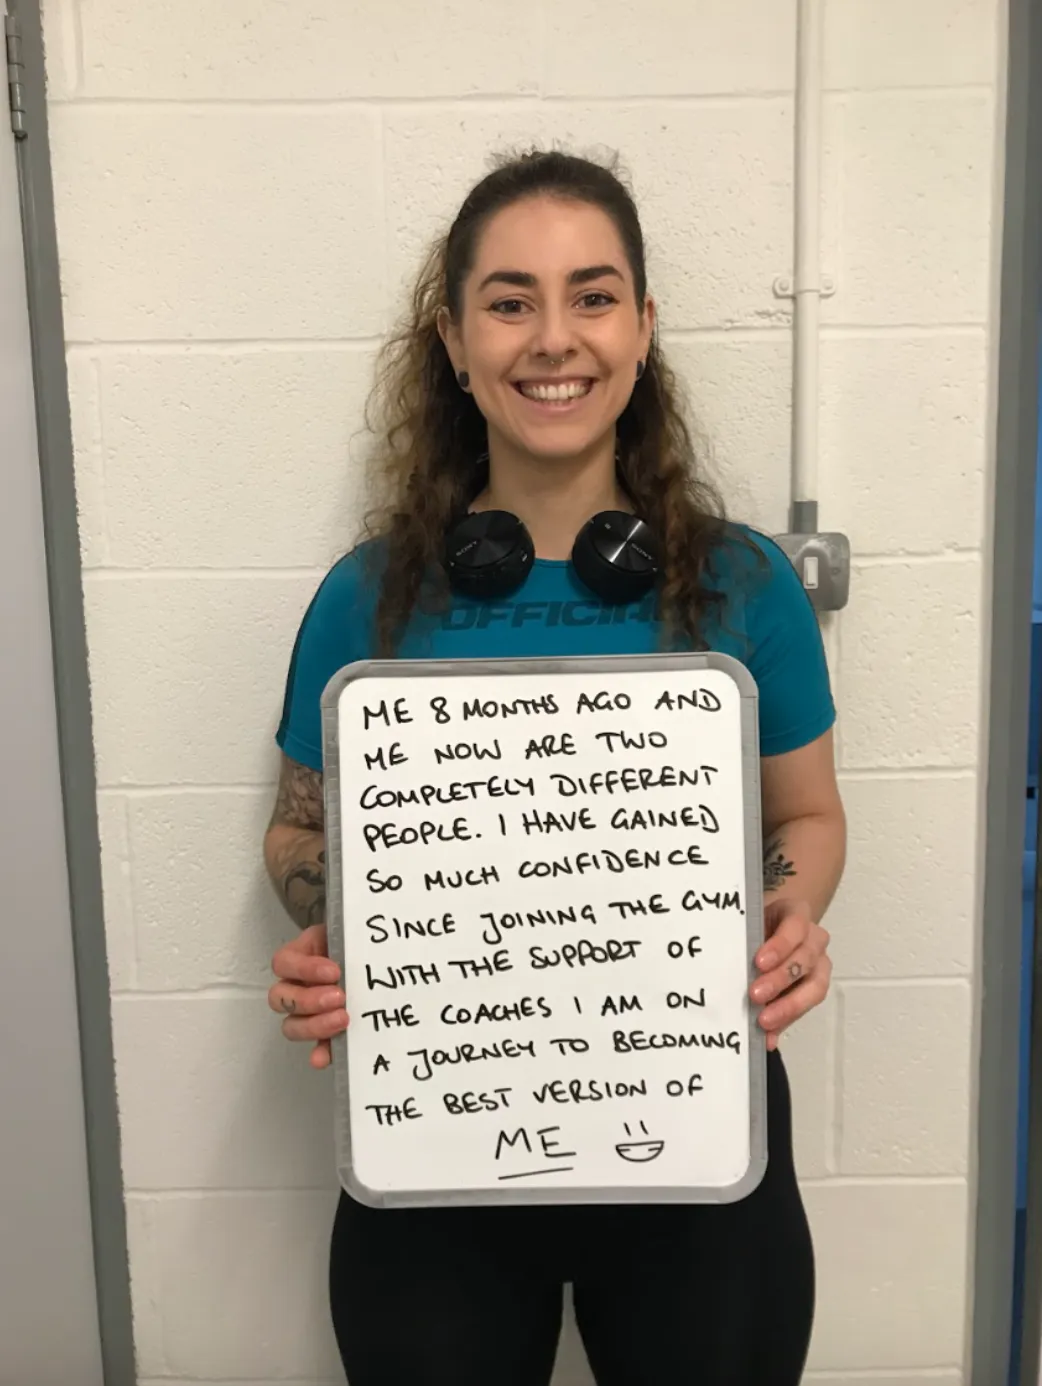 SONY
SONY
OFFICIAL
ME 8 MONTHS AGO AND
ME NOW ARE TWO
COMPLETELY DIFFERENT
PEOPLE. I HAVE GAINED
SO MUCH CONFIDENCE
SINCE JOINING THE GYM.
WITH THE SUPPORT OF
THE COACHES I AM ON
A JOURNEY TO BECOMING
THE BEST VERSION OF
ME